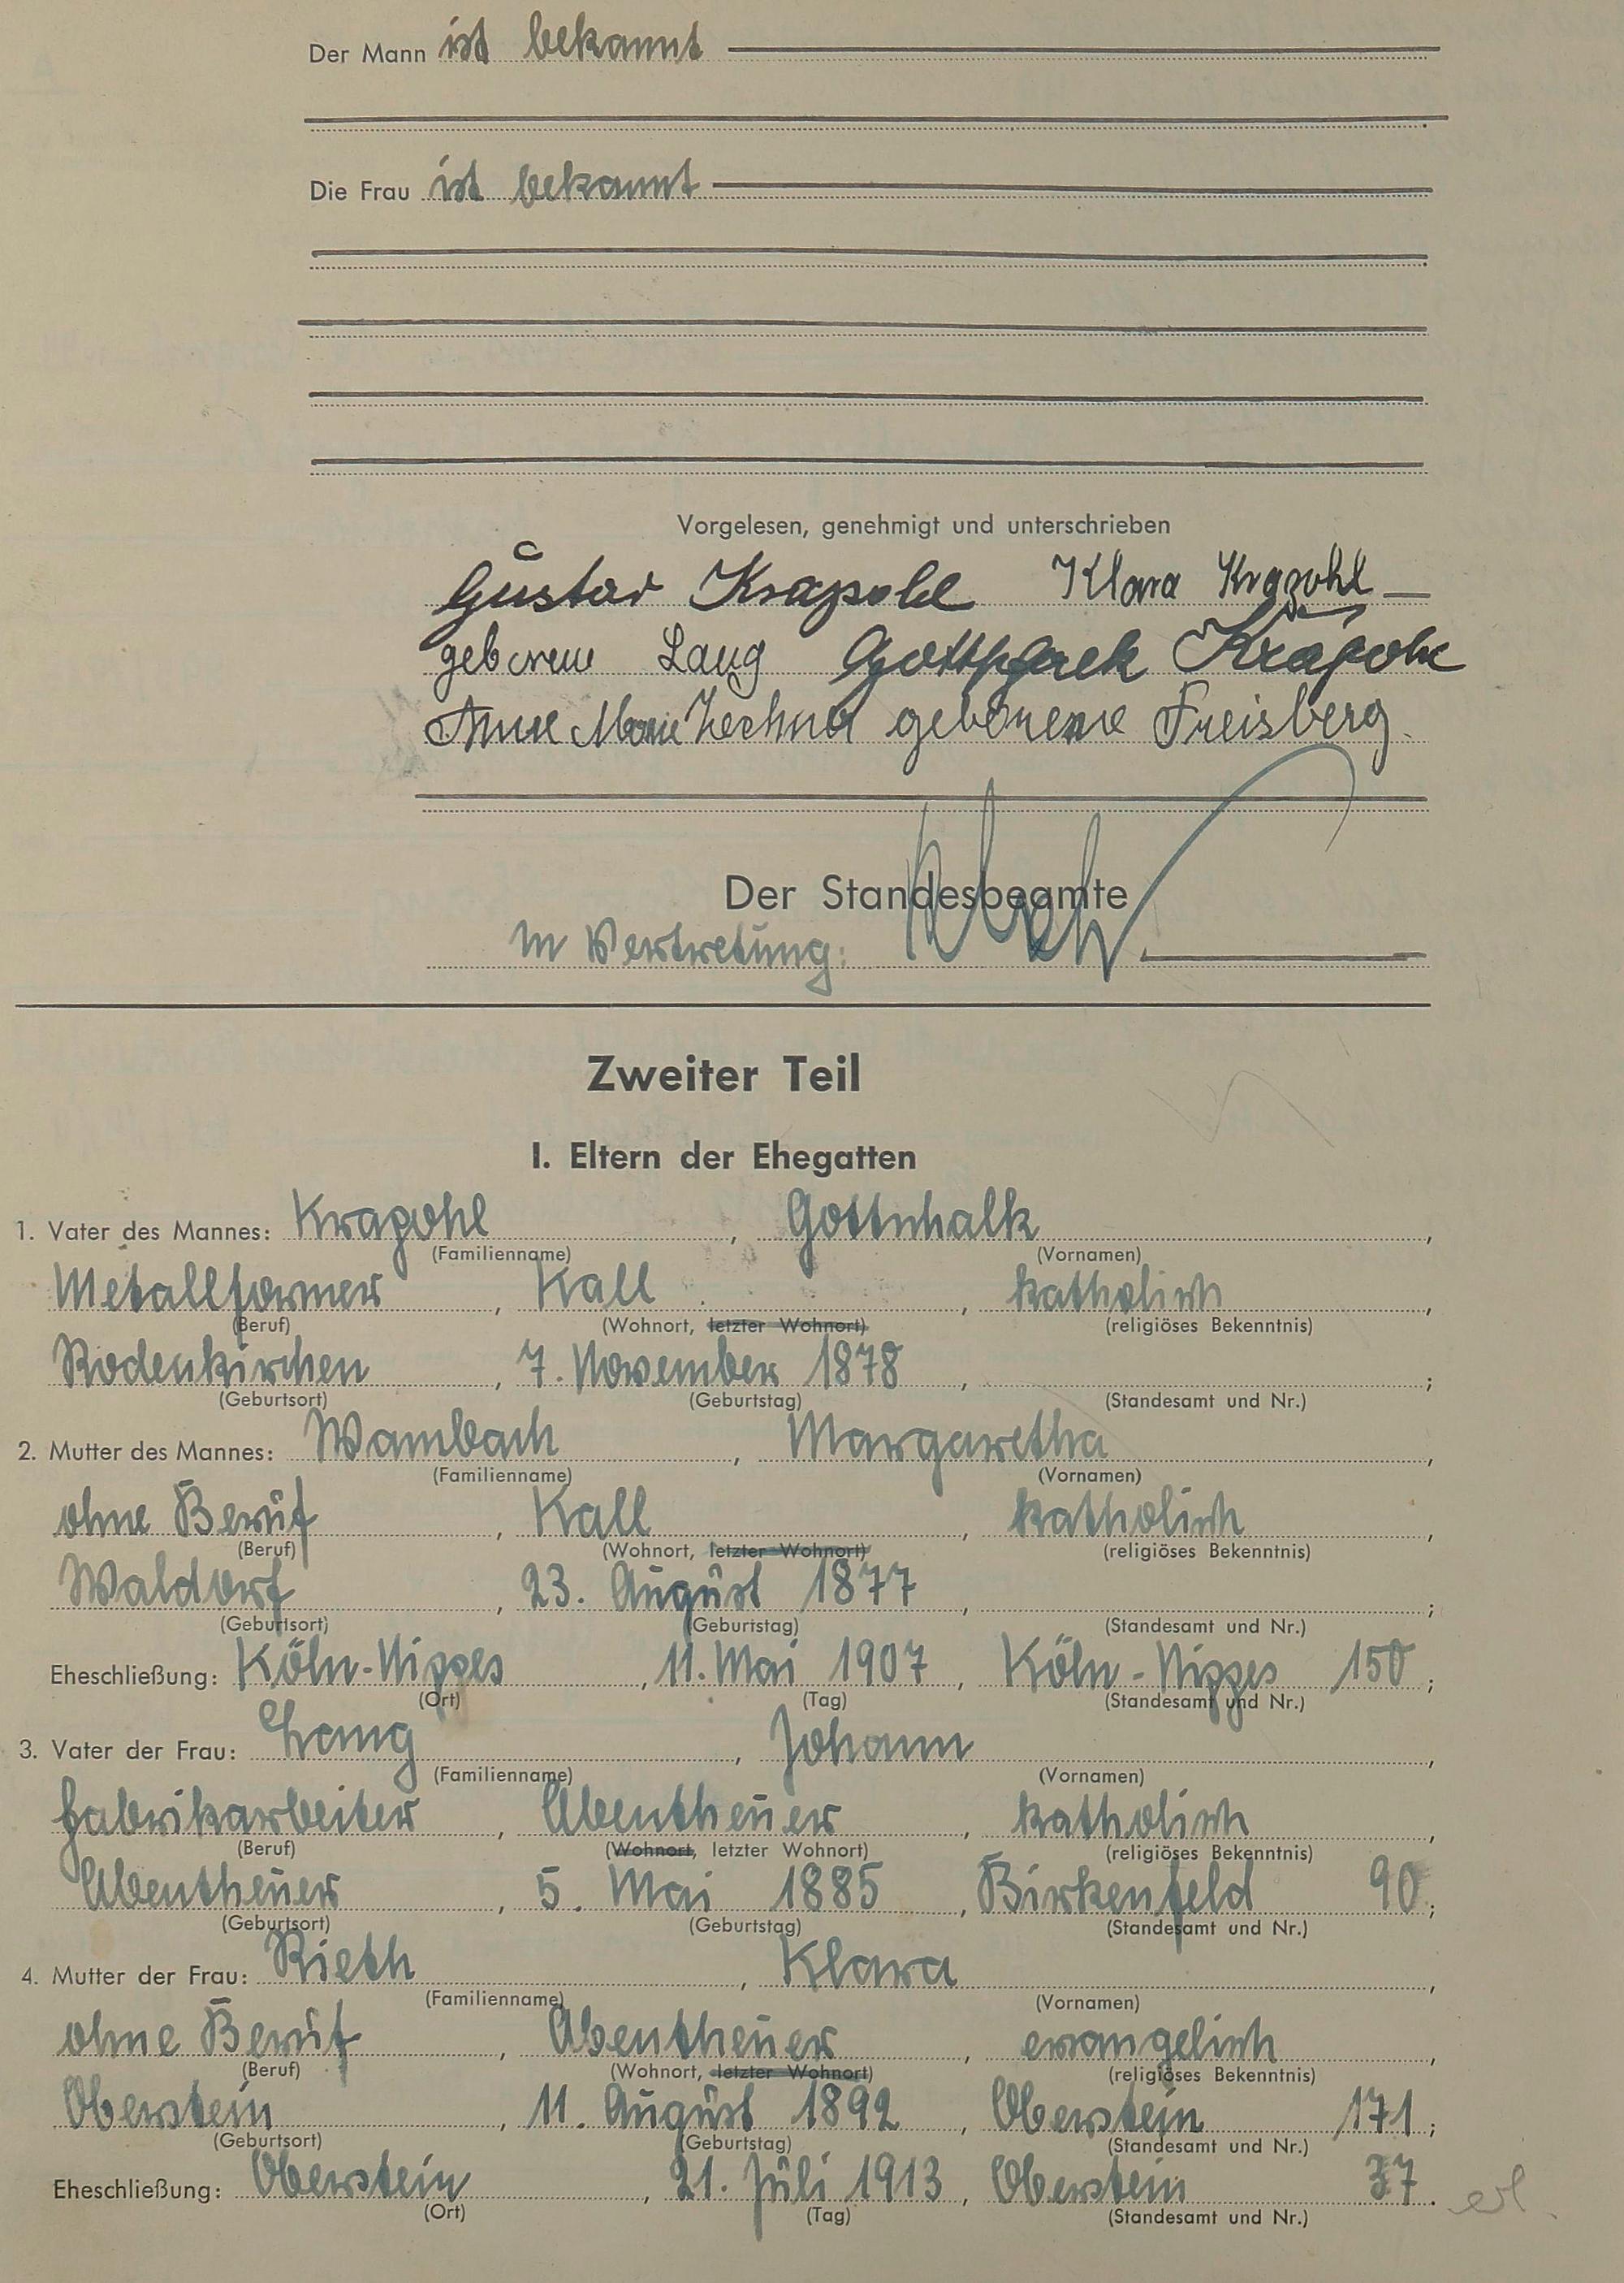 Der Mann ist bekannt
Die Frau ist bekannt
Vorgelesen, genehmigt und unterschrieben
Gustav Krapohl Klara Krapohl
geborene Lang Gottschalk Krapohl
Anne Marie geborene Freisberg.
Der Standesbeamte
In Vertretung:
Zweiter Teil
I. Eltern der Ehegatten
1. Vater des Mannes: Krapohl, Gottschalk,
(Familienname) (Vornamen)
Metallformer, Kall, katholisch,
(Beruf) (Wohnort, letzter Wohnort) (religiöses Bekenntnis)
Rodenkirchen, 7. November 1878, ;
(Geburtsort) (Geburtstag) (Standesamt und Nr.)
2. Mutter des Mannes: Wambach, Margaretha,
(Familienname) (Vornamen)
ohne Beruf, Kall, katholisch,
(Beruf) (Wohnort, letzter Wohnort) (religiöses Bekenntnis)
Waldorf, 23. August 1877, ;
(Geburtsort) (Geburtstag) (Standesamt und Nr.)
Eheschließung: Köln-Nippes, 11. Mai 1907, Köln-Nippes 150;
(Ort) (Tag) (Standesamt und Nr.)
3. Vater der Frau: Lang, Johann,
(Familienname) (Vornamen)
Fabrikarbeiter, Abentheuer, katholisch,
(Beruf) (Wohnort, letzter Wohnort) (religiöses Bekenntnis)
Abentheuer, 5. Mai 1885, Birkenfeld 90;
(Geburtsort) (Geburtstag) (Standesamt und Nr.)
4. Mutter der Frau: Rieth, Klara,
(Familienname) (Vornamen)
ohne Beruf, Abentheuer, evangelisch,
(Beruf) (Wohnort, letzter Wohnort) (religiöses Bekenntnis)
Oberstein, 11. August 1892, Oberstein 171;
(Geburtsort) (Geburtstag) (Standesamt und Nr.)
Eheschließung: Oberstein, 21. Juli 1913, Oberstein 37. erl.
(Ort) (Tag) (Standesamt und Nr.)